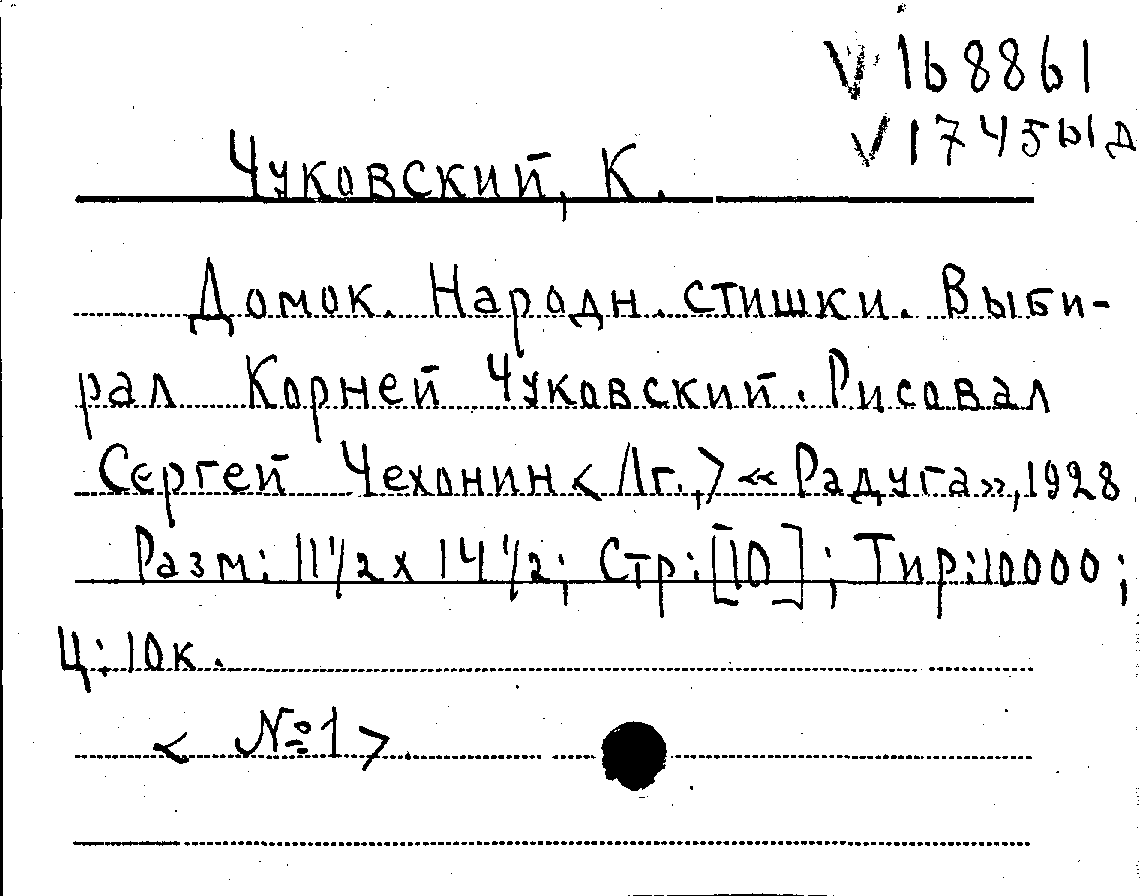 V 168861
V 17456 1д
Чуковский, К.
Домок. Народн. стишки. Выби-
рал Корней Чуковский. Рисовал
Сергей Чехонин <Лг.,> «Радуга», 1928
Разм: 11 1/2 x 14 1/2; Стр: [10]; Тир: 10000;
Ц: 10к.
< №1 >